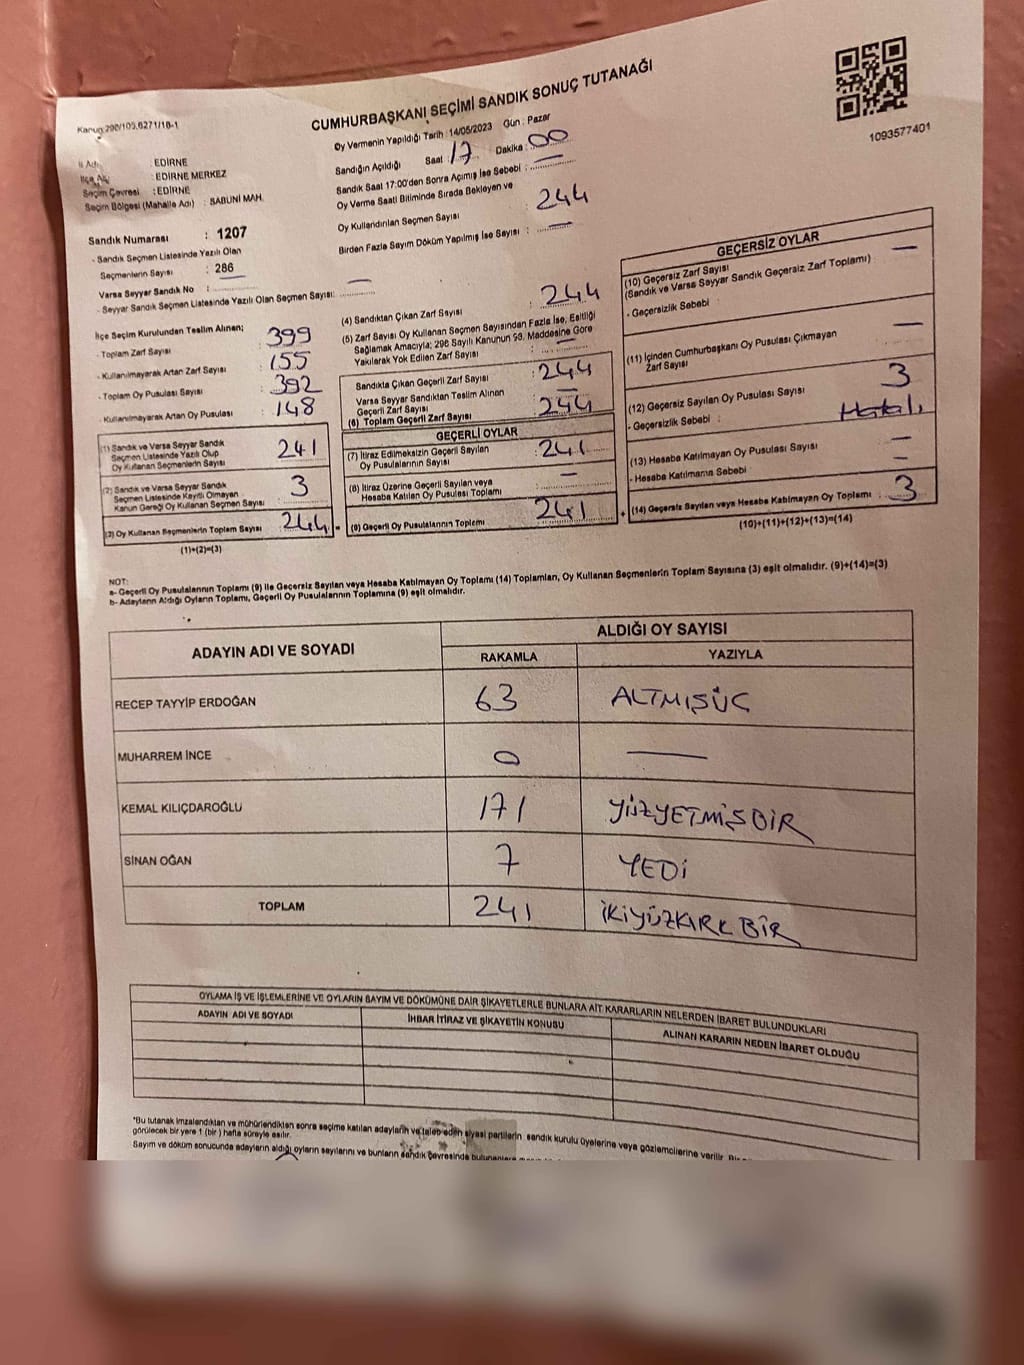 Kanun 298/103,6271/18-1
CUMHURBAŞKANI SEÇİMİ SANDIK SONUÇ TUTANAĞI
1093577401
Oy Vermenin Yapıldığı Tarih : 14/05/2023 Gün : Pazar
İl Adı : EDİRNE
İlçe Adı : EDİRNE MERKEZ
Seçim Çevresi : EDİRNE
Seçim Bölgesi (Mahalle Adı) : SABUNİ MAH.
Sandık Numarası : 1207
- Sandık Seçmen Listesinde Yazılı Olan
Seçmenlerin Sayısı : 286
Varsa Seyyar Sandık No :
- Seyyar Sandık Seçmen Listesinde Yazılı Olan Seçmen Sayısı:
Sandığın Açıldığı Saat : 17 Dakika : 00
Sandık Saat 17:00'den Sonra Açılmış İse Sebebi : —
Oy Verme Saati Bitiminde Sırada Bekleyen ve
Oy Kullandırılan Seçmen Sayısı : 244
Birden Fazla Sayım Döküm Yapılmış İse Sayısı : —
İlçe Seçim Kurulundan Teslim Alınan;
- Toplam Zarf Sayısı : 399
- Kullanılmayarak Artan Zarf Sayısı : 155
- Toplam Oy Pusulası Sayısı : 392
- Kullanılmayarak Artan Oy Pusulası : 148
(1) Sandık ve Varsa Seyyar Sandık
Seçmen Listesinde Yazılı Olup
Oy Kullanan Seçmenlerin Sayısı 241
(2) Sandık ve Varsa Seyyar Sandık
Seçmen Listesinde Kayıtlı Olmayan
Kanun Gereği Oy Kullanan Seçmen Sayısı : 3
(3) Oy Kullanan Seçmenlerin Toplam Sayısı : 244
(1)+(2)=(3)
(4) Sandıktan Çıkan Zarf Sayısı : 244
(5) Zarf Sayısı Oy Kullanan Seçmen Sayısından Fazla İse, Eşitliği
Sağlamak Amacıyla; 298 Sayılı Kanunun 98. Maddesine Göre
Yakılarak Yok Edilen Zarf Sayısı : —
Sandıkta Çıkan Geçerli Zarf Sayısı : 244
Varsa Seyyar Sandıktan Teslim Alınan
Geçerli Zarf Sayısı : —
(6) Toplam Geçerli Zarf Sayısı : 244
GEÇERLİ OYLAR
(7) İtiraz Edilmeksizin Geçerli Sayılan
Oy Pusulalarının Sayısı : 241
(8) İtiraz Üzerine Geçerli Sayılan veya
Hesaba Katılan Oy Pusulası Toplamı : —
= (9) Geçerli Oy Pusulalarının Toplamı : 241
GEÇERSİZ OYLAR
(10) Geçersiz Zarf Sayısı —
(Sandık ve Varsa Seyyar Sandık Geçersiz Zarf Toplamı) :
- Geçersizlik Sebebi :
(11) İçinden Cumhurbaşkanı Oy Pusulası Çıkmayan —
Zarf Sayısı
(12) Geçersiz Sayılan Oy Pusulası Sayısı 3
- Geçersizlik Sebebi : Hatalı
(13) Hesaba Katılmayan Oy Pusulası Sayısı : —
- Hesaba Katılmama Sebebi : —
+ (14) Geçersiz Sayılan veya Hesaba Katılmayan Oy Toplamı : 3
(10)+(11)+(12)+(13)=(14)
NOT:
a- Geçerli Oy Pusulalarının Toplamı (9) ile Geçersiz Sayılan veya Hesaba Katılmayan Oy Toplamı (14) Toplamları, Oy Kullanan Seçmenlerin Toplam Sayısına (3) eşit olmalıdır. (9)+(14)=(3)
b- Adayların Aldığı Oyların Toplamı, Geçerli Oy Pusulalarının Toplamına (9) eşit olmalıdır.
ADAYIN ADI VE SOYADI ALDIĞI OY SAYISI
RAKAMLA YAZIYLA
RECEP TAYYİP ERDOĞAN 63 ALTMIŞÜÇ
MUHARREM İNCE 0 —
KEMAL KILIÇDAROĞLU 171 YÜZYETMİŞBİR
SİNAN OĞAN 7 YEDİ
TOPLAM 241 İKİYÜZKIRK BİR
OYLAMA İŞ VE İŞLEMLERİNE VE OYLARIN SAYIM VE DÖKÜMÜNE DAİR ŞİKAYETLERLE BUNLARA AİT KARARLARIN NELERDEN İBARET BULUNDUKLARI
ADAYIN ADI VE SOYADI İHBAR İTİRAZ VE ŞİKAYETİN KONUSU ALINAN KARARIN NEDEN İBARET OLDUĞU
*Bu tutanak imzalandıktan ve mühürlendikten sonra seçime katılan adayların ve talep eden siyasi partilerin sandık kurulu üyelerine veya gözlemcilerine verilir.
görülecek bir yere 1 (bir) hafta süreyle asılır.
Sayım ve döküm sonucunda adayların aldığı oyların sayılarını ve bunların sandık çevresinde